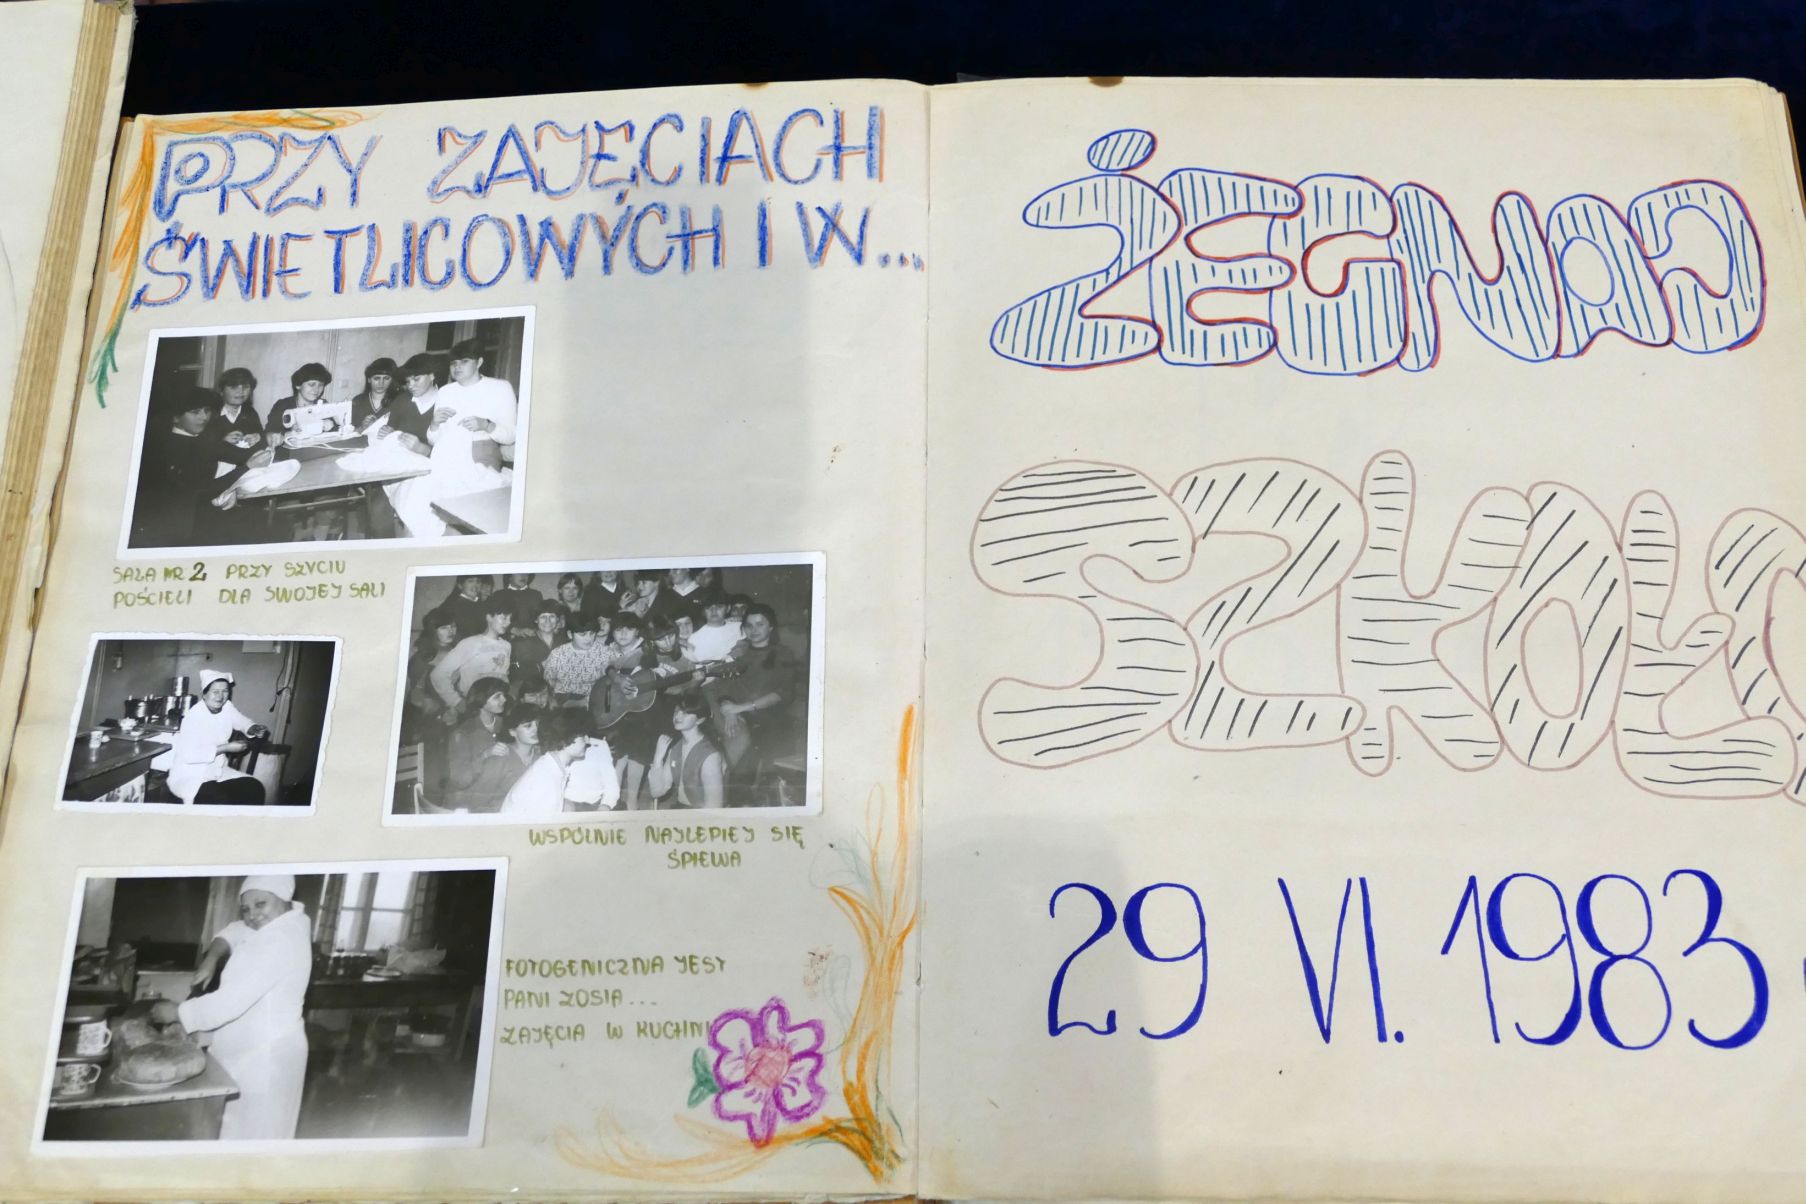 PRZY ZAJĘCIACH
ŚWIETLICOWYCH I W...
SALA NR 2 PRZY SZYCIU
POŚCIELI DLA SWOJEJ SALI
WSPÓLNIE NAJLEPIEJ SIĘ
ŚPIEWA
FOTOGENICZNA JEST
PANI ZOSIA...
ZAJĘCIA W KUCHNI
ŻEGNAJ
SZKOŁO
29 VI. 1983